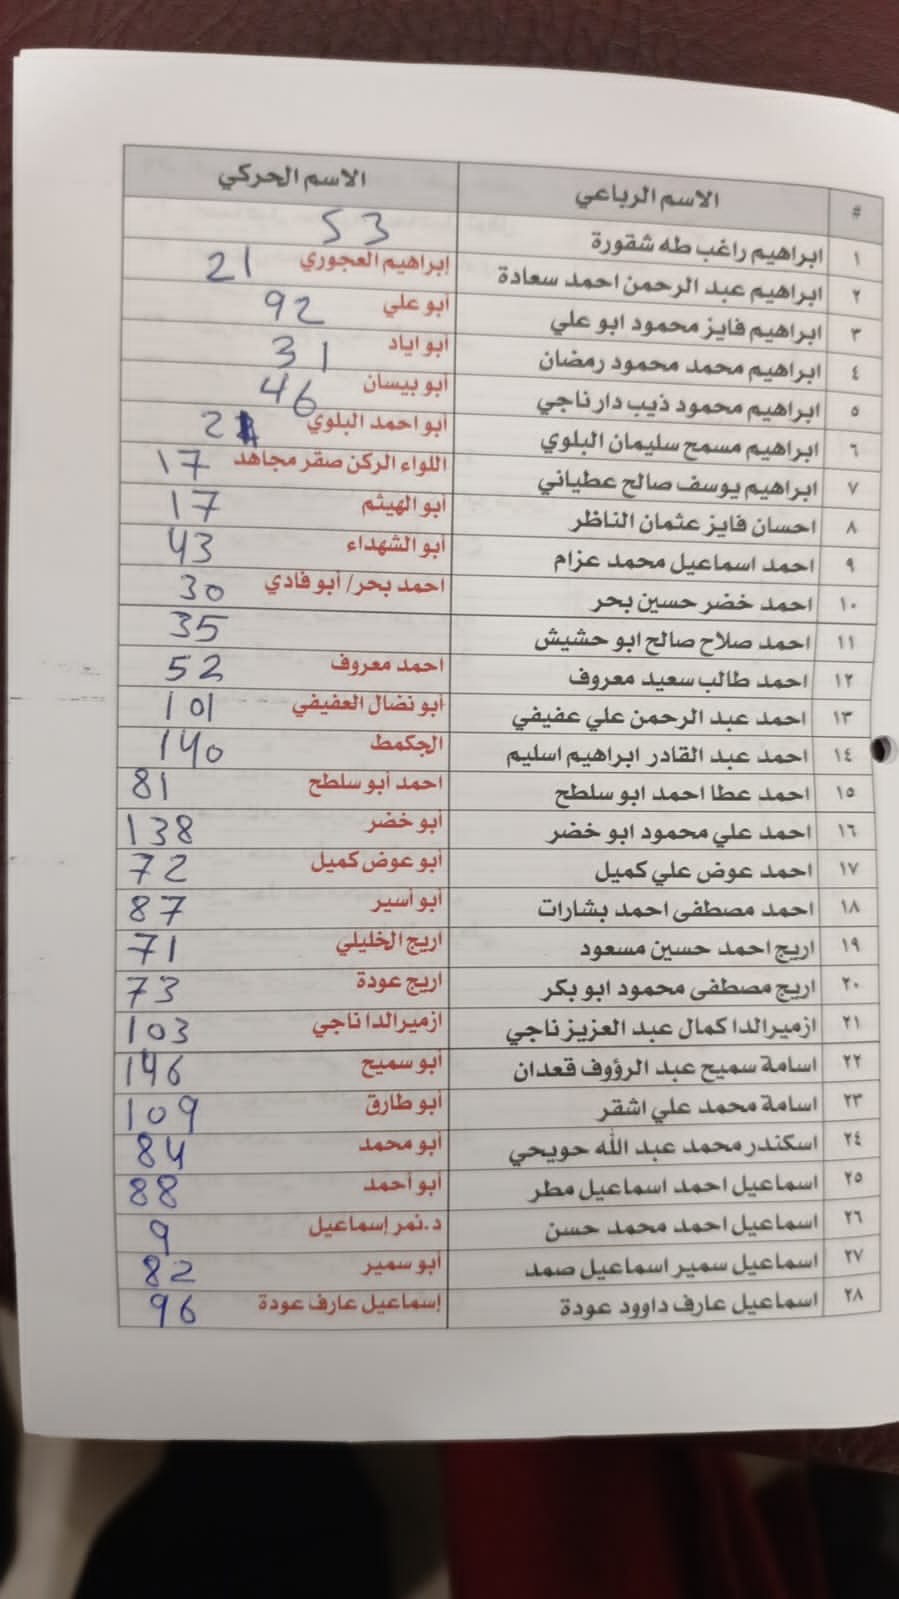 # الاسم الرباعي الاسم الحركي
١ ابراهيم راغب طه شقورة 53
٢ ابراهيم عبد الرحمن احمد سعادة إبراهيم العجوري 21
٣ ابراهيم فايز محمود ابو علي أبو علي 92
٤ ابراهيم محمد محمود رمضان أبو اياد 31
٥ ابراهيم محمود ذيب دار ناجي أبو بيسان 46
٦ ابراهيم مسمح سليمان البلوي أبو احمد البلوي
٧ ابراهيم يوسف صالح عطياني اللواء الركن صقر مجاهد 17
٨ احسان فايز عثمان الناظر أبو الهيثم 17
٩ احمد اسماعيل محمد عزام أبو الشهداء 43
١٠ احمد خضر حسين بحر احمد بحر/ أبو فادي 30
١١ احمد صلاح صالح ابو حشيش 35
١٢ احمد طالب سعيد معروف احمد معروف 52
١٣ احمد عبد الرحمن علي عفيفي أبو نضال العفيفي 101
١٤ احمد عبد القادر ابراهيم اسليم الجكمط 140
١٥ احمد عطا احمد ابو سلطح احمد أبو سلطح 81
١٦ احمد علي محمود ابو خضر أبو خضر 138
١٧ احمد عوض علي كميل أبو عوض كميل 72
١٨ احمد مصطفى احمد بشارات أبو أسير 87
١٩ اريج احمد حسين مسعود اريج الخليلي 71
٢٠ اريج مصطفى محمود ابو بكر اريج عودة 73
٢١ ازميرالدا كمال عبد العزيز ناجي ازميرالدا ناجي 103
٢٢ اسامة سميح عبد الرؤوف قعدان أبو سميح 146
٢٣ اسامة محمد علي اشقر أبو طارق 109
٢٤ اسكندر محمد عبد الله حويحي أبو محمد 84
٢٥ اسماعيل احمد اسماعيل مطر أبو أحمد 88
٢٦ اسماعيل احمد محمد حسن د.نمر إسماعيل 9
٢٧ اسماعيل سمير اسماعيل صمد أبو سمير 82
٢٨ اسماعيل عارف داوود عودة إسماعيل عارف عودة 96